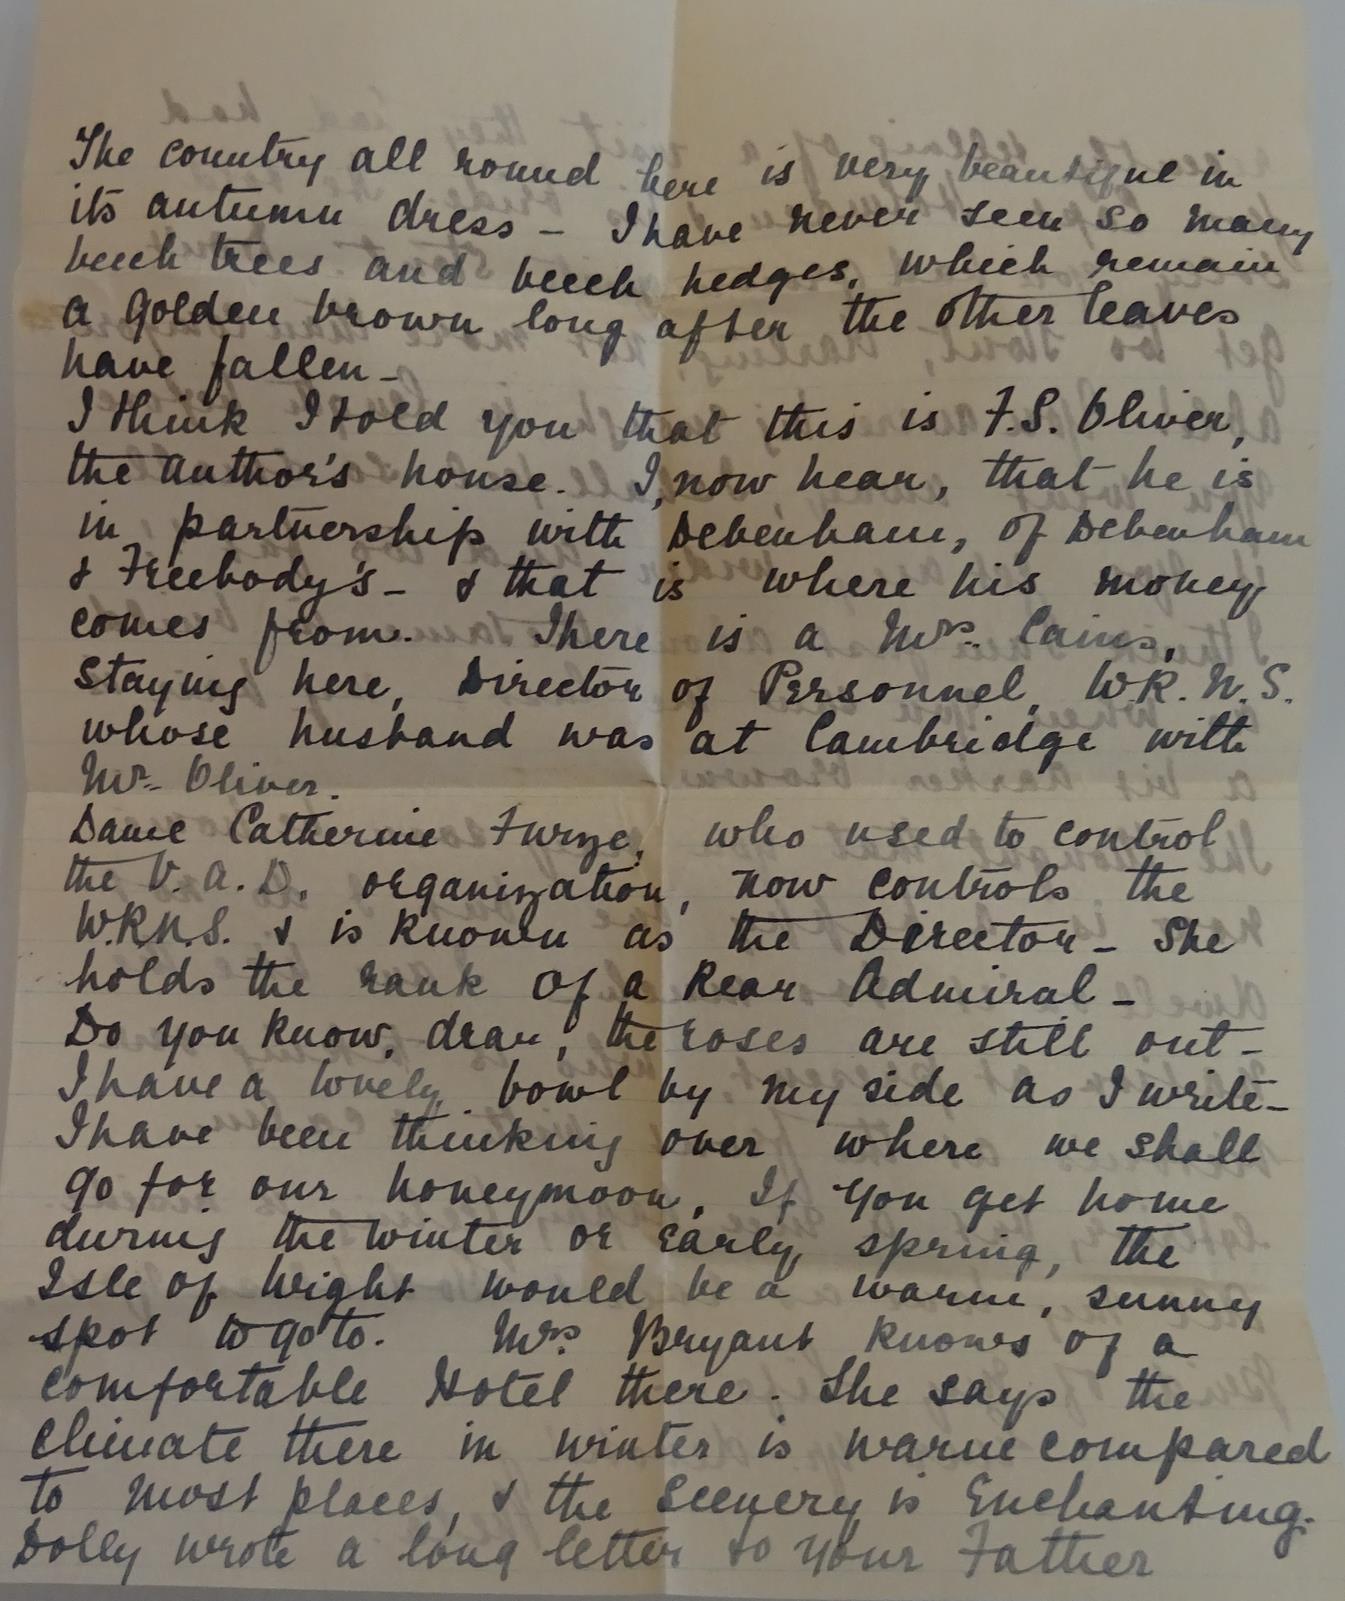 The country all round here is very beautiful in
its autumn dress - I have never seen so many
beech trees and beech hedges, which remain
a golden brown long after the other leaves
have fallen -
I think I told you that this is F.S. Oliver,
the author's house. I, now hear, that he is
in partnership with Debenham, of Debenham
& Freebody's - & that is where his money
comes from. There is a Mrs. Cains,
staying here, Director of Personnel, W.R.N.S.
whose husband was at Cambridge with
Mr. Oliver.
Dame Catherine Furze, who used to control
the V.A.D. organization, now controls the
W.R.N.S. & is known as the Director - She
holds the rank of a Rear Admiral -
Do you know, dear, the roses are still out -
I have a lovely bowl by my side as I write -
I have been thinking over where we shall
go for our honeymoon. If you get home
during the winter or early spring, the
Isle of Wight would be a warm, sunny
spot to go to. Mrs Bryant knows of a
comfortable Hotel there. She says the
climate there in winter is warm compared
to most places, & the scenery is enchanting.
Dolly wrote a long letter to your Father